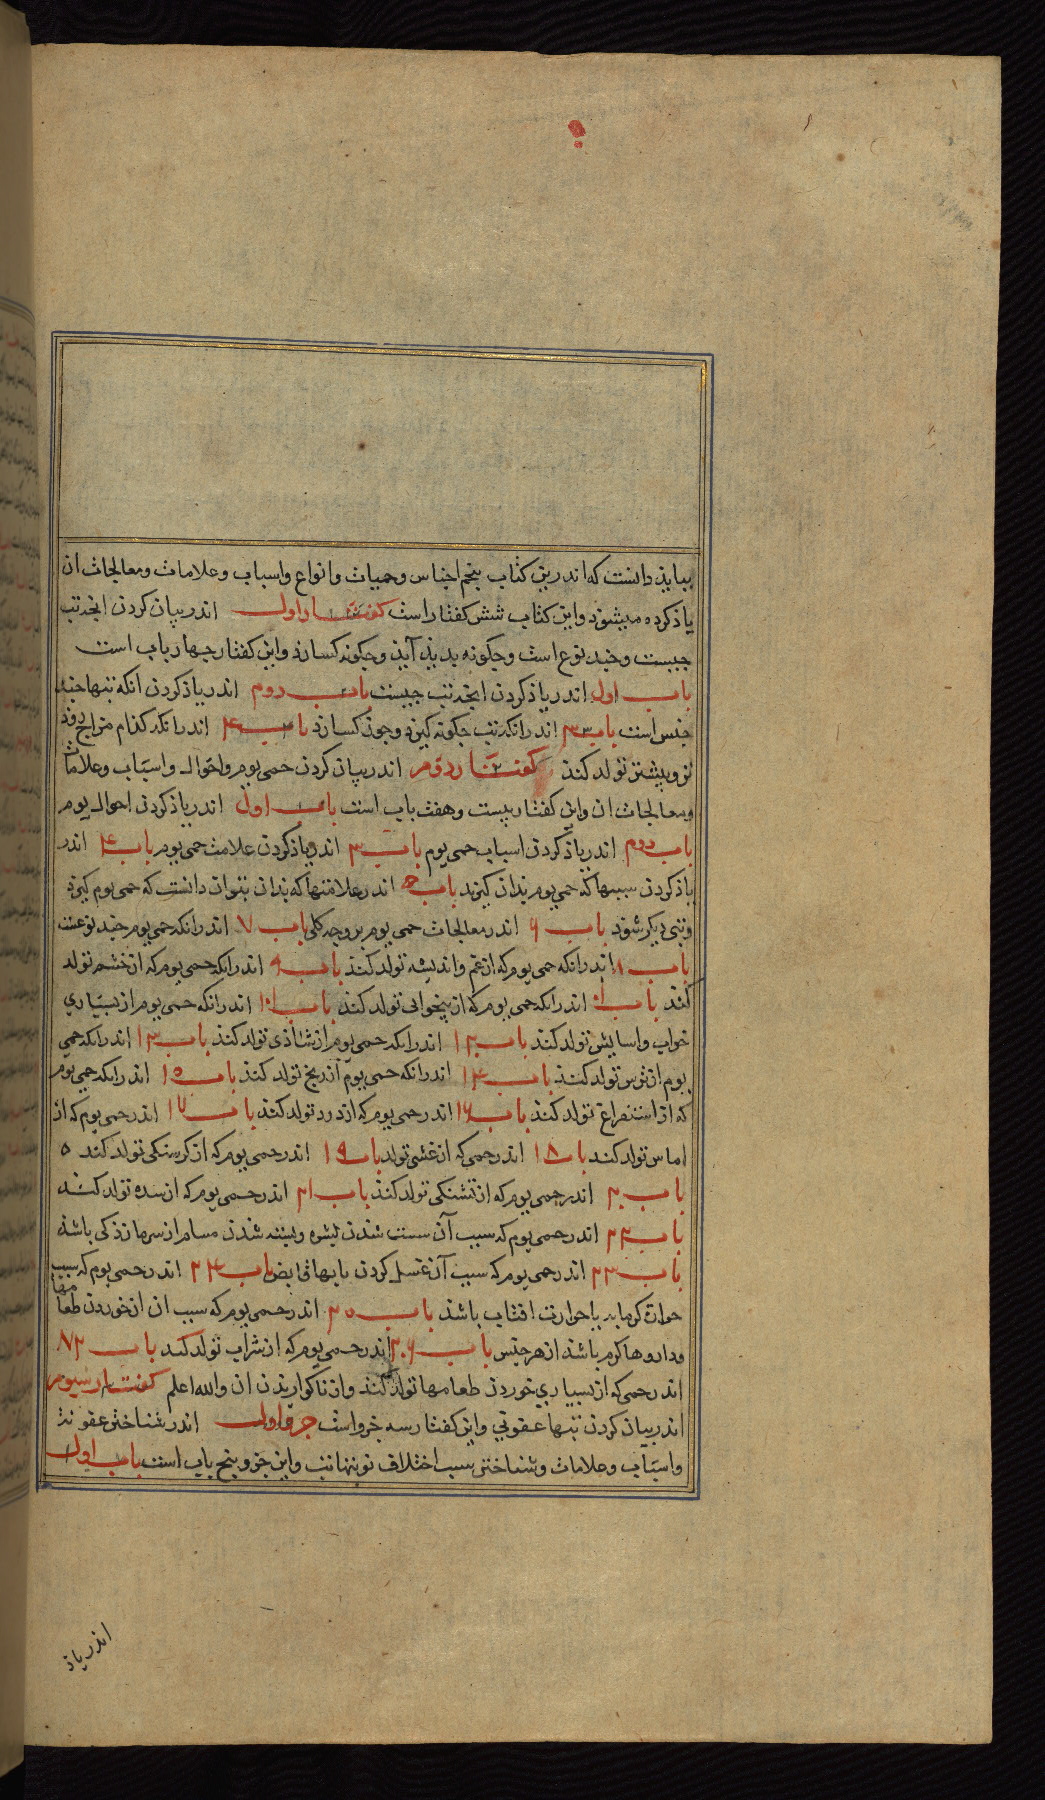 ببایذ دانست که اندرین کتاب پنجم اجناس و حمیات و انواع و اسباب و علامات و معالجات ان
یاذ کرده میشوذ و این کتاب شش کفتار است کفتار اول اندر بیان کردن انخه تب
جیست و خند نوع است و جکونه بدیذ آیذ و جکونه کسارذ و این کفتار جهار باب است
باب اول اندر یاذ کردن انخه تب جیست باب دوم اندر یاذ کردن انکه تبها خند
جنس است باب ۳ اندر انکه تب جکونه کیرذ و جون کسارذ باب ۴ اندر انکه کذام مزاج زوذ
تر و بیشتر تولد کند کفتار دوم اندر بیان کردن حمی یوم و احوال و اسباب و علامات
و معالجات ان و این کفتار بیست و هفت باب است باب اول اندر یاذ کردن احوال یوم
باب دوم اندر یاذ کردن اسباب حمی یوم باب ۳ اندر یاذ کردن علامت حمی یوم باب ۴ اندر
یاذ کردن سببها که حمی یوم بذان کیرند باب ۵ اندر علامتها که بذان بتوان دانست که حمی یوم کیرذ
وتبی دیکر شوذ باب ۶ اندر معالجات حمی یوم بر وجه کلی باب ۷ اندر انکه حمی یوم خند نوعست
باب ۸ اندر انکه حمی یوم که از غم و اندیشه تولد کند باب ۹ اندر انکه حمی یوم که از خشم تولد
کند باب ۱۰ اندر انکه حمی یوم که از بیخوابی تولد کند باب ۱۱ اندر انکه حمی یوم از بسیاری
خواب و اسایش تولد کند باب ۱۲ اندر انکه حمی یوم از شاذی تولد کند باب ۱۳ اندر انکه حمی
یوم از ترس تولد کند باب ۱۴ اندر انکه حمی یوم از رنج تولد کند باب ۱۵ اندر انکه حمی یوم
که از استفراغ تولد کند باب ۱۶ اندر حمی یوم که از درد تولد کند باب ۱۷ اندر حمی یوم که از
اماس تولد کند باب ۱۸ اندر حمی که از غشی تولد باب ۱۹ اندر حمی یوم که از کرسنکی تولد کند ه
باب ۲۰ اندر حمی یوم که از تشنکی تولد کند باب ۲۱ اندر حمی یوم که از سده تولد کند
باب ۲۲ اندر حمی یوم که سبب آن سست شدن لیشره و بسته شذن مسام از سرمازذکی باشذ
باب ۲۳ اندر حمی یوم که سبب آن غسل کردن بابهای قابض باب ۲۴ اندر حمی یوم که سبب
حرارت کرمابه یا حرارت افتاب باشذ باب ۲۵ اندر حمی یوم که سبب ان از خوردن طعامها
وداروها کرم باشذ از هر جنس باب ۲۶ اندر حمی یوم که از شراب تولد کند باب ۲۷
اندر حمی که از بسیاری خوردن طعامها تولد کند و از ناکواریذن ان والله اعلم کفتار سیوم
اندر بیان کردن تبها عفونی و این کفتار سه جزو است جزو اول اندر شناختن عفونت
و اسباب و علامات و شناختن سبب اختلاف نوبتها تب و این جزو پنج باب است باب اول
اندر یاذ